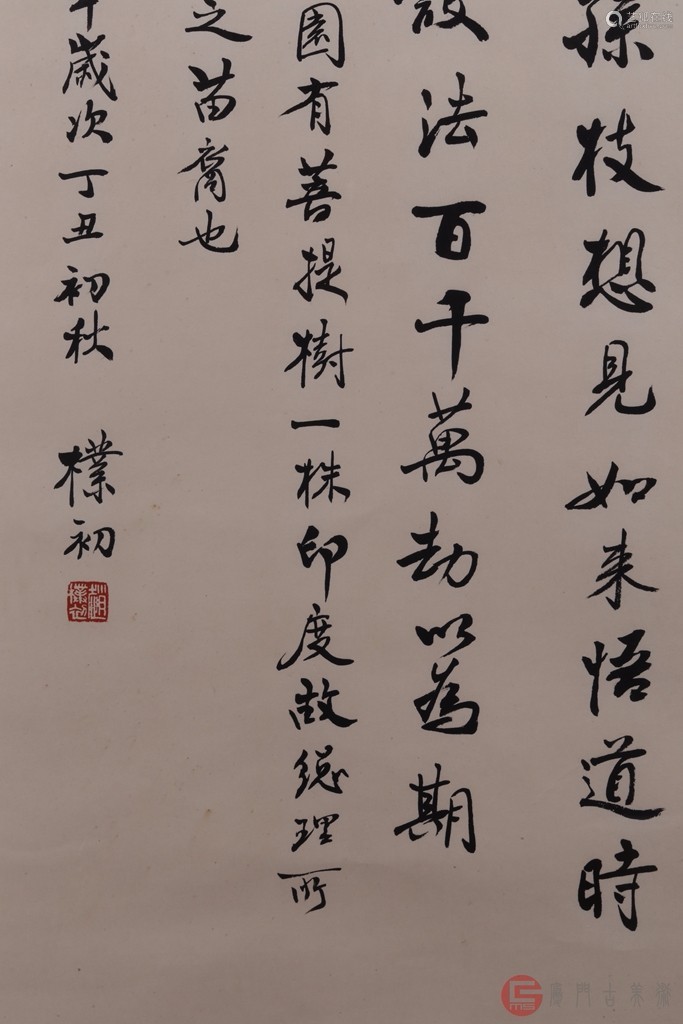 孫枝想見如来悟道時
法百千萬劫以為期
園有菩提樹一株印度故總理所
之苗裔也
歲次丁丑初秋
樸初
趙樸初